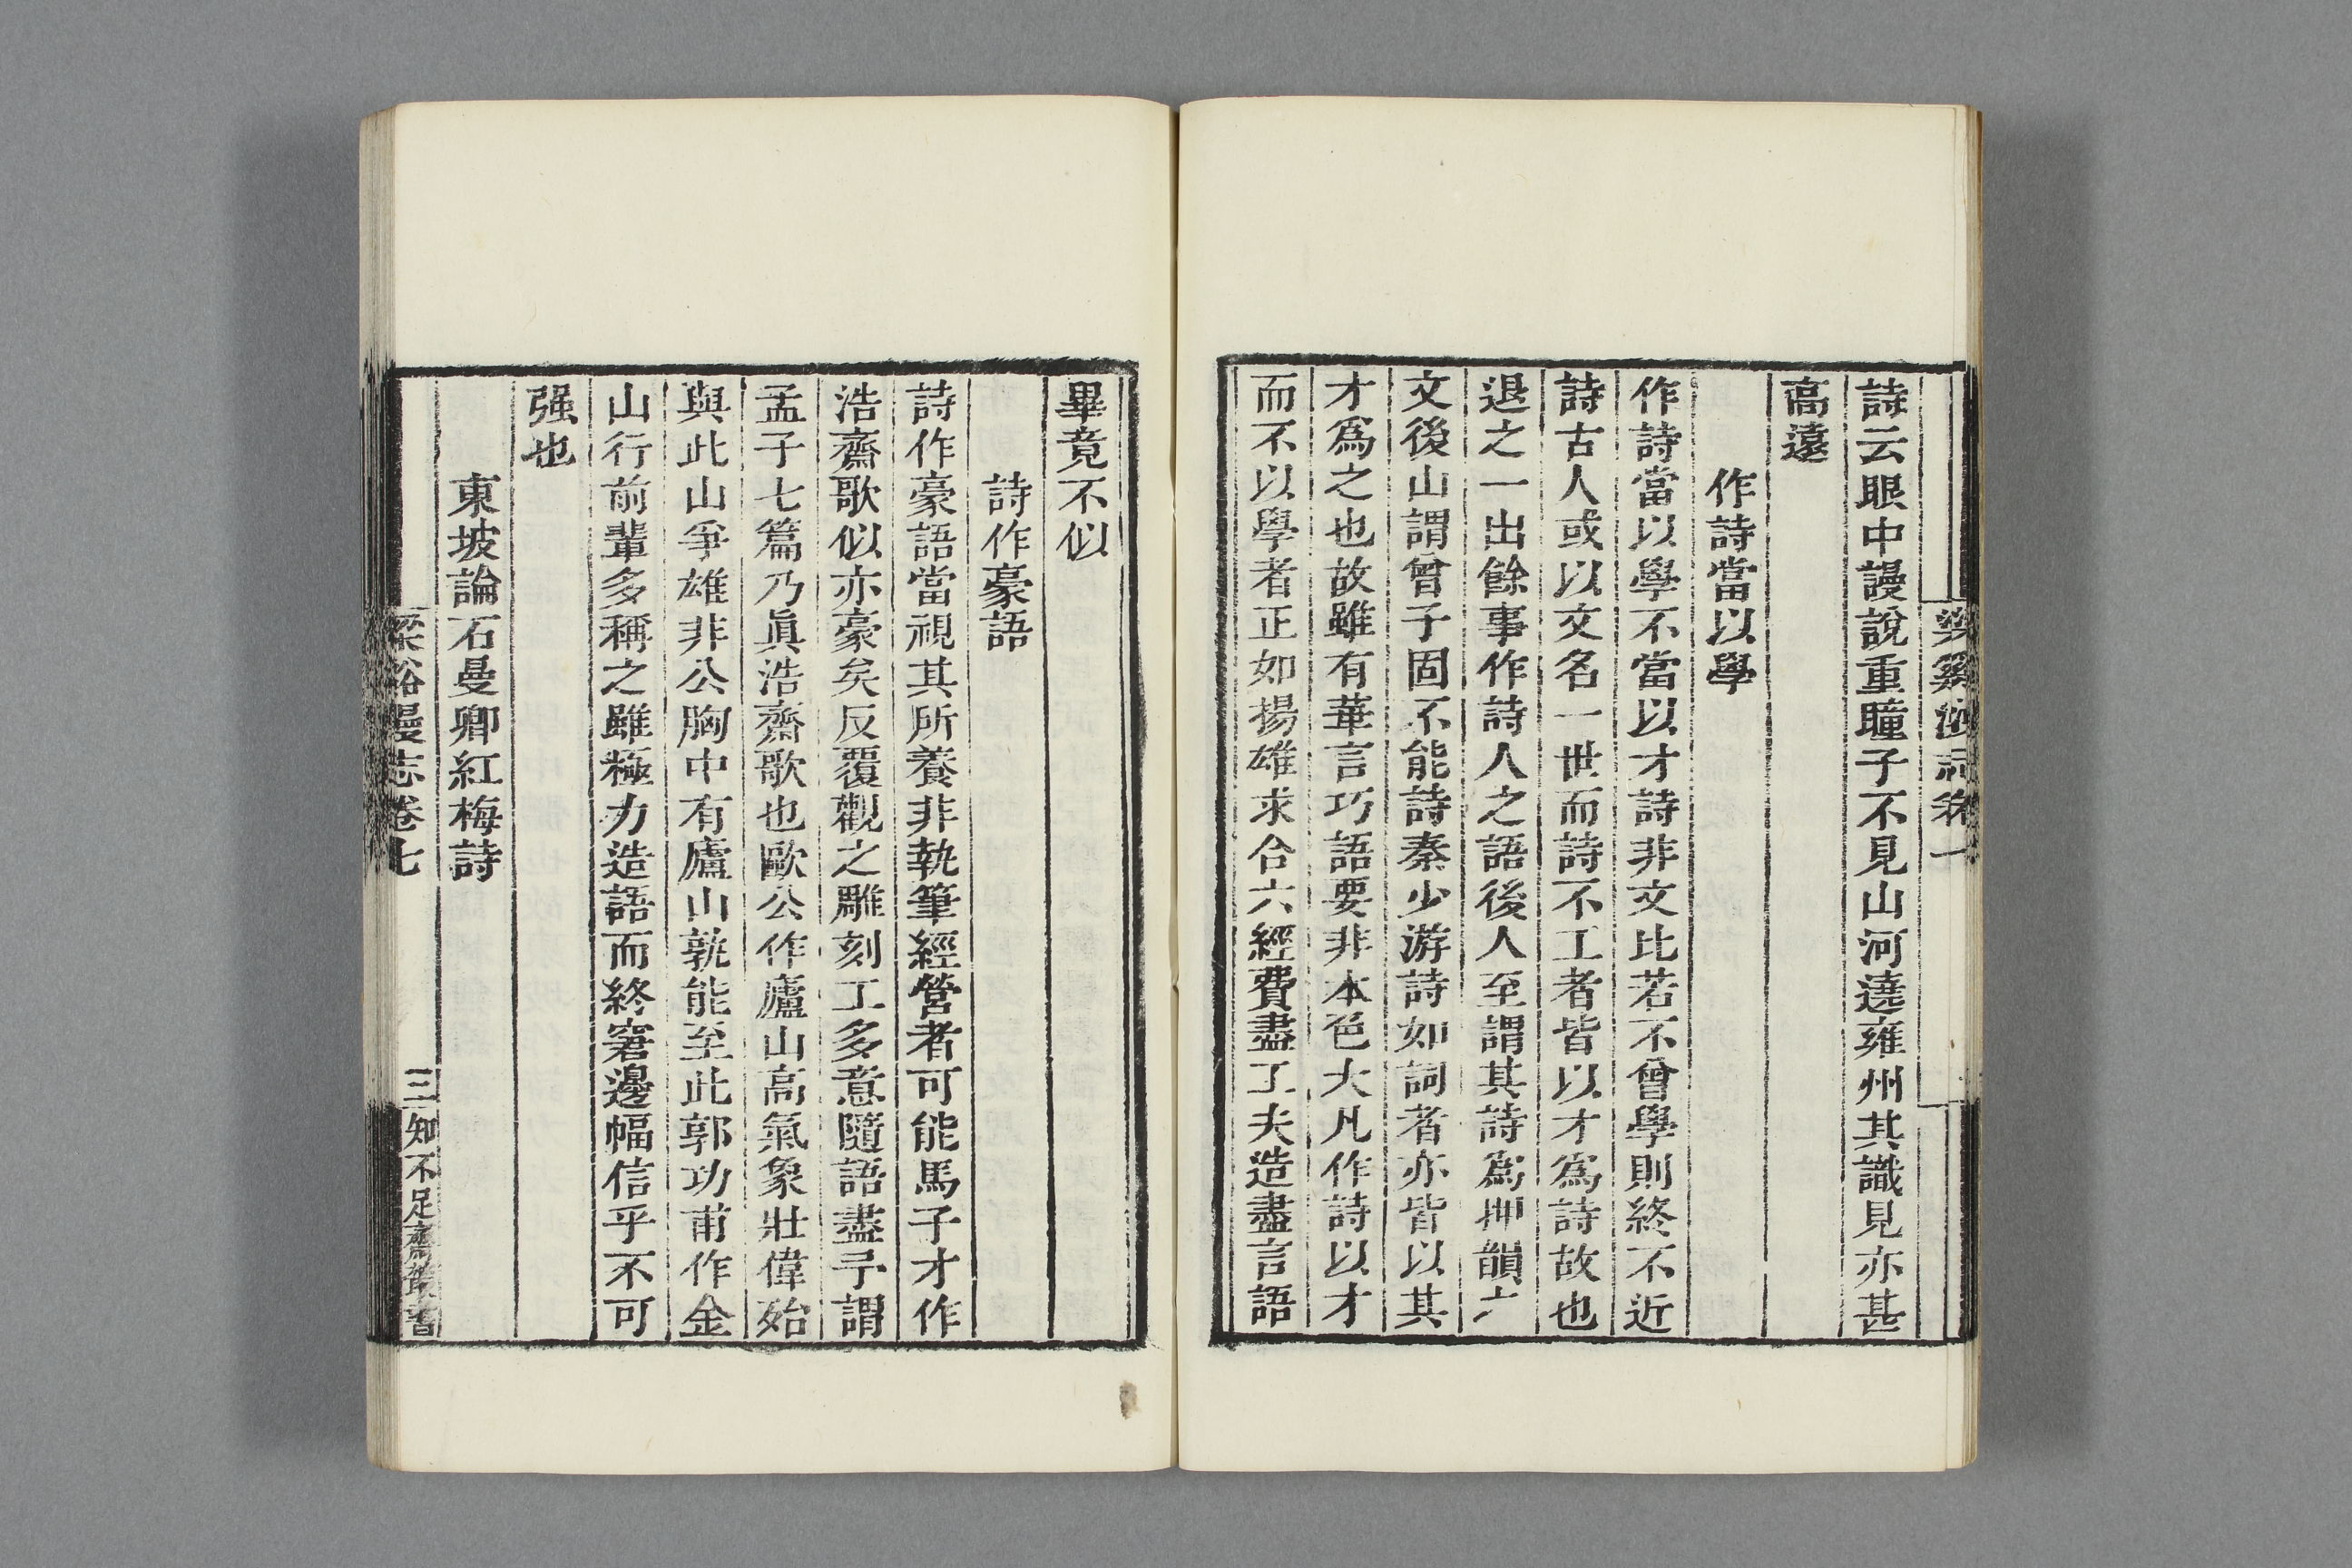 詩云眼中謾說重瞳子不見山河遶雍州其識見亦甚
高遠
作詩當以學
作詩當以學不當以才詩非文比若不曾學則終不近
詩古人或以文名一世而詩不工者皆以才爲詩故也
退之一出餘事作詩人之語後人至謂其詩爲押韻之
文後山謂曾子固不能詩秦少游詩如詞者亦皆以其
才爲之也故雖有華言巧語要非本色大凡作詩以才
而不以學者正如揚雄求合六經費盡工夫造盡言語
畢竟不似
詩作豪語
詩作豪語當視其所養非執筆經營者可能馬子才作
浩齋歌似亦豪矣反覆觀之雕刻工多意隨語盡予謂
孟子七篇乃眞浩齋歌也歐公作廬山高氣象壯偉殆
與此山爭雄非公胸中有廬山孰能至此郭功甫作金
山行前輩多稱之雖極力造語而終窘邊幅信乎不可
强也
東坡論石曼卿紅梅詩
梁谿漫志卷七
三
知不足齋叢書